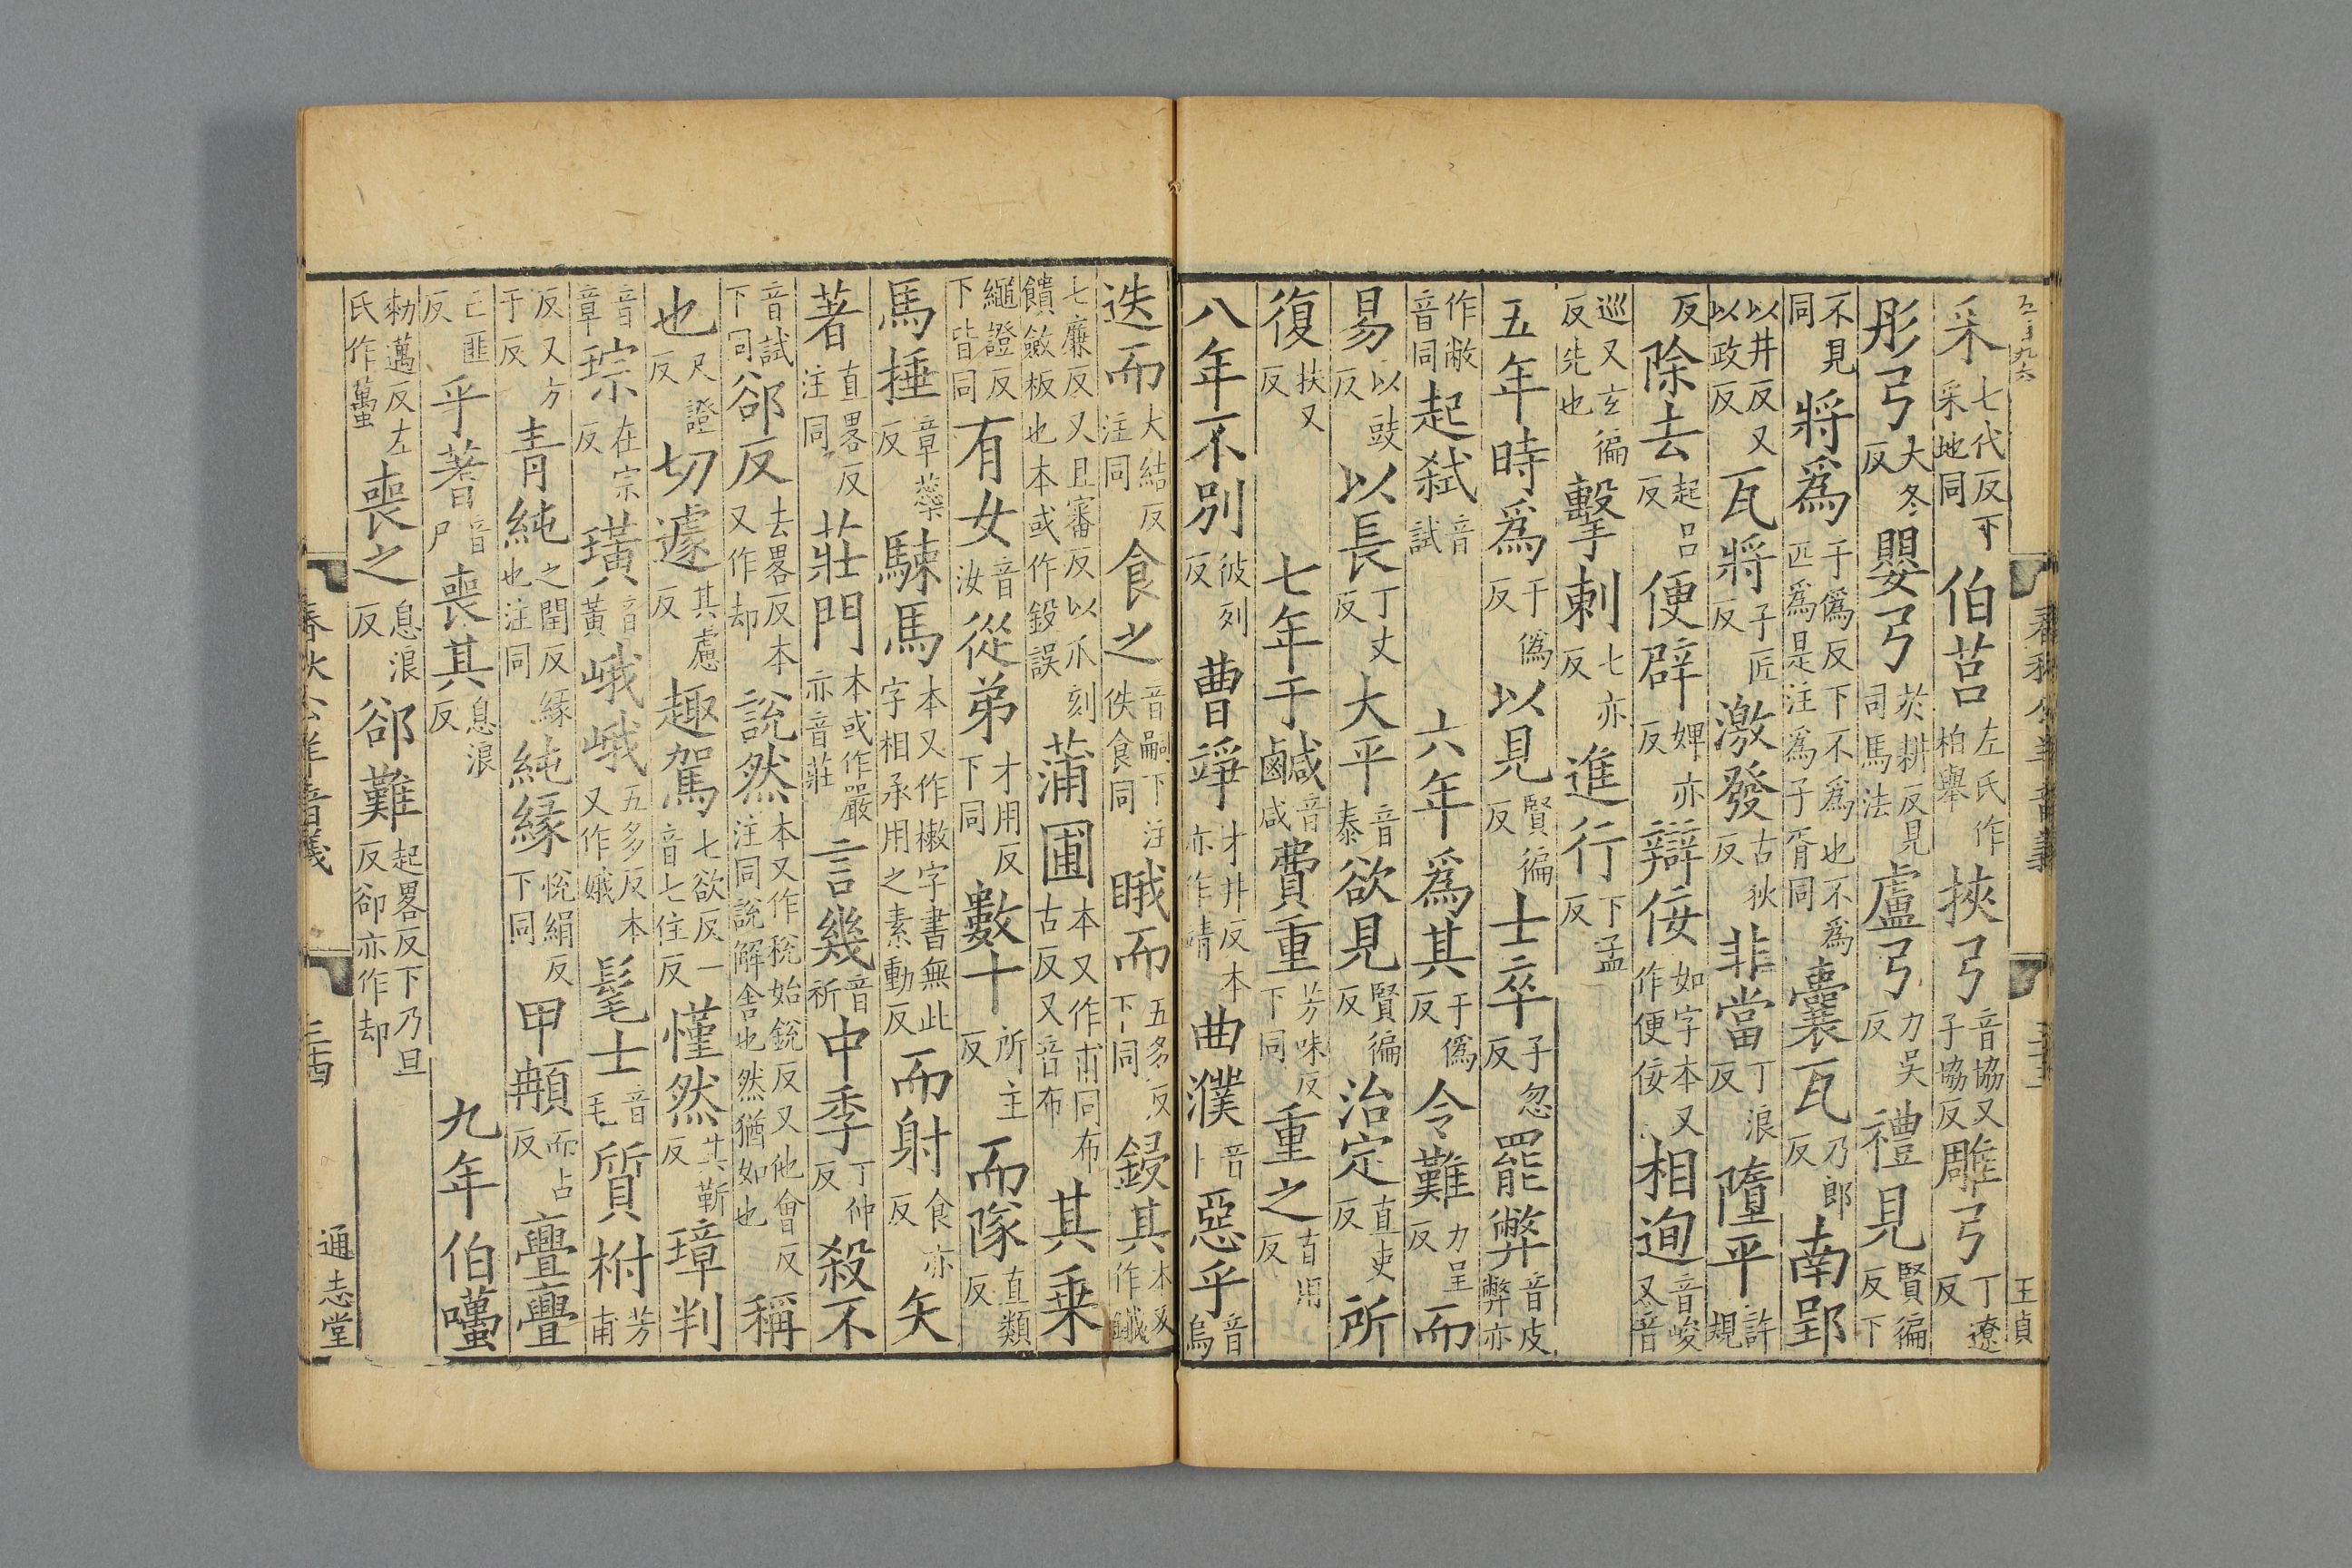 采七代反下采地同伯莒左氏作柏舉挾弓音協又子協反雕弓丁遼反
彤弓大冬反嬰弓於耕反見司馬法盧弓力吳反禮見賢徧反下
不見同將爲于僞反下不爲也不爲匹爲是注爲子胥同囊瓦乃郎反南郢
以井反又以政反瓦將子匠反激發古狄反非當丁浪反墮平許規
反除去起呂反便辟婢亦反辯佞如字本又作便佞相迿音峻又音
巡又玄徧反先也擊刺七亦反進行下孟反
五年時爲于僞反以見賢徧反士卒子忽反罷弊音皮弊亦
作敝音同起弑音試六年爲其于僞反令難力呈反而
易以豉反以長丁丈反大平音泰欲見賢徧反治定直吏反所
復扶又反七年于鹹音咸費重芳味反下同重之直用反
八年不別彼列反曹竫才井反本亦作靖曲濮音卜惡乎音烏
春秋公羊音義
王貞
迭而大結反注同食之音嗣下注佚食同睋而五多反下同鋟其本又作鑯
七廉反又且審反以爪刻饋斂板也本或作鋟誤蒲圃本又作甫同布古反又音布其乗
繩證反下皆同有女音汝從弟才用反下同數十所主反而隊直類反
馬捶章蘂反駷馬本又作樕字書無此字相承用之素動反而射食亦反矢
著直畧反注同莊門本或作嚴亦音莊言幾音祈中季丁仲反殺不
音試下同郤反去畧反本又作却說然本又作稅始銳反又他會反注同說解舍也然猶如也稱
也尺證反切遽其慮反趣駕七欲反一音七住反慬然其靳反璋判
音章琮在宗反璜音黃峨峨五多反本又作娥髦士音毛質柎芳甫
反又方于反青純之閏反緣也注同純緣悅絹反下同甲䫇而占反亹亹
亡匪反乎著音尸喪其息浪反九年伯噧
勑邁反左氏作蠆喪之息浪反郤難起畧反下乃旦反卻亦作却
春秋公羊音義
三十四
通志堂